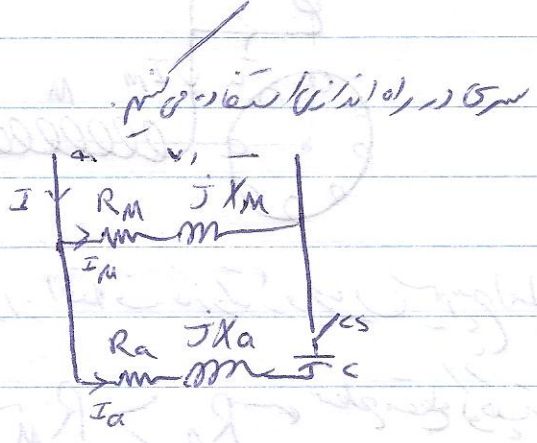 سری در راه اندازی استفاده می کنیم.
+ V, −
I R_M jX_M
I_M
Ra jXa CS
C
I_a